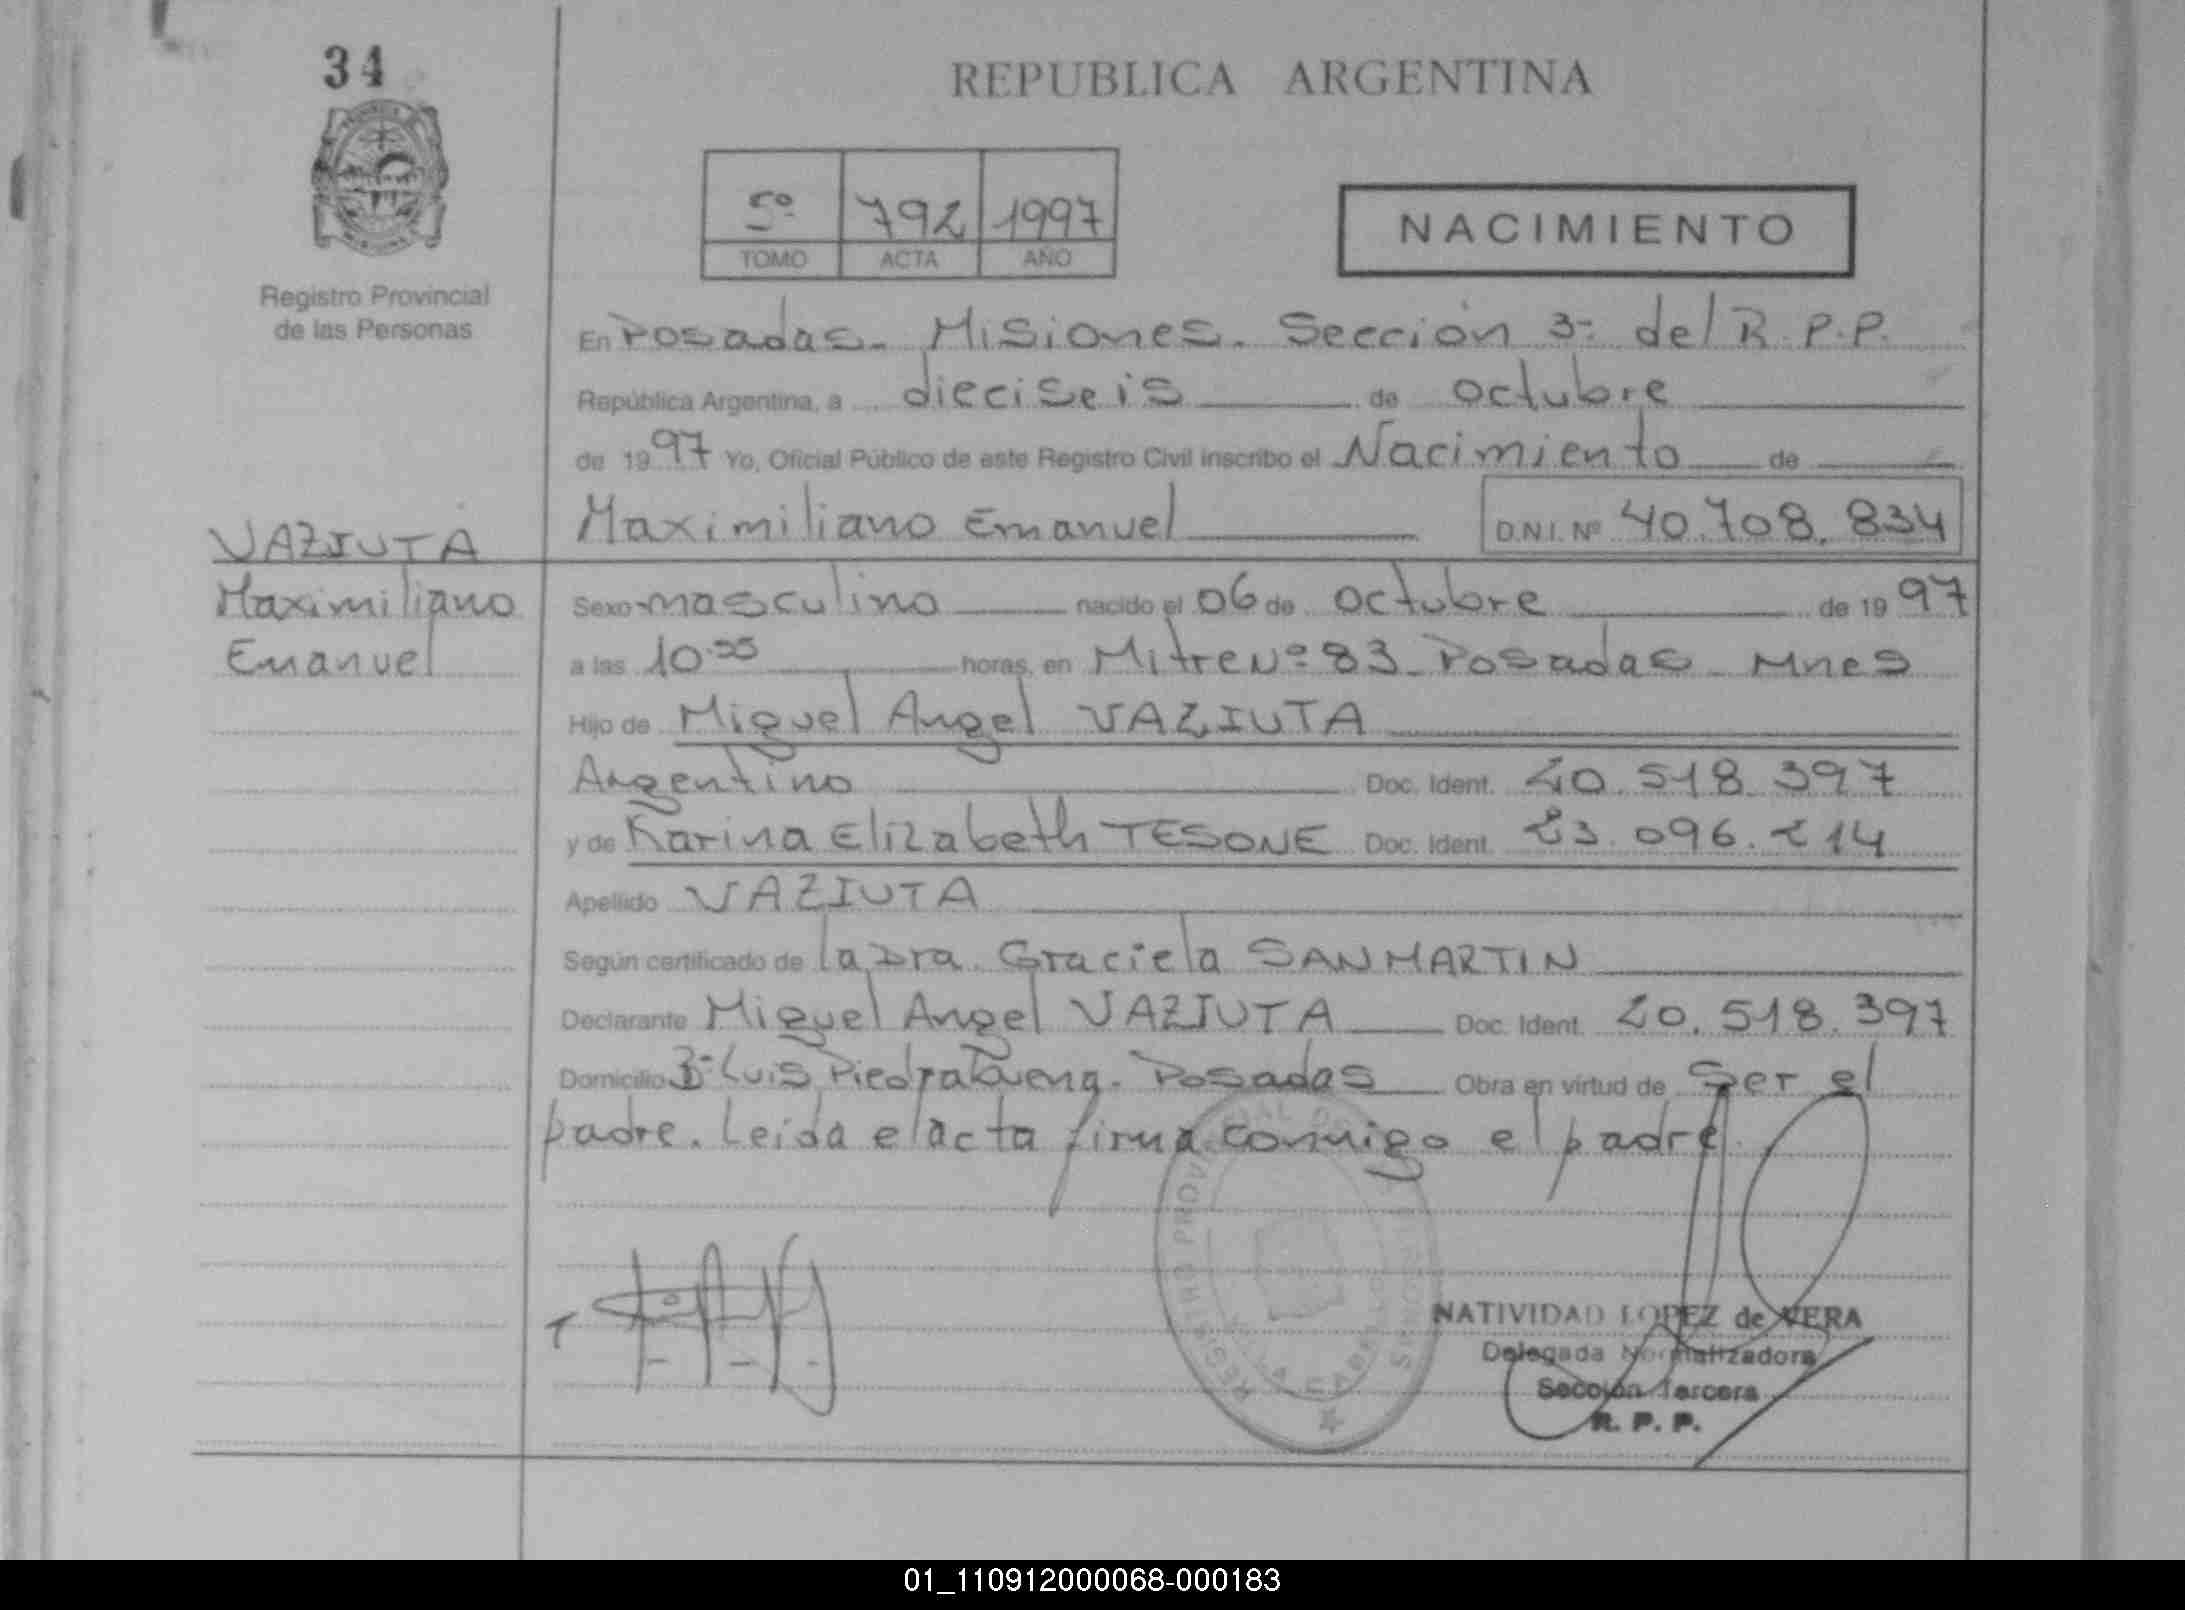 34
REPUBLICA ARGENTINA
5º 792 1997
TOMO ACTA AÑO
NACIMIENTO
Registro Provincial
de las Personas
En Posadas. Misiones. Sección 3ª del R.P.P.
República Argentina, a dieciseis de octubre
de 1997 Yo, Oficial Público de este Registro Civil inscribo el Nacimiento de
Maximiliano Emanuel D.N.I. Nº 40.708.834
VAZIUTA
Maximiliano
Emanuel
Sexo masculino nacido el 06 de octubre de 1997
a las 10.55 horas, en Mitre Nº 83 Posadas Mnes
Hijo de Miguel Angel VAZIUTA
Argentino Doc. Ident. 20.518.397
y de Karina Elizabeth TESONE Doc. Ident. 23.096.214
Apellido VAZIUTA
Según certificado de la Dra. Graciela SANMARTIN
Declarante Miguel Angel VAZIUTA Doc. Ident. 20.518.397
Domicilio Bº Luis Piedrabuena. Posadas Obra en virtud de ser el
padre. Leida el acta firma conmigo el padre.
REGISTRO PROVINCIAL DE
MISIONES
VILLA CABELLO
NATIVIDAD LOPEZ de VERA
Delegada Normalizadora
Sección Tercera
R. P. P.
01_110912000068-000183